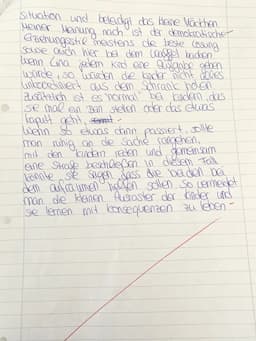 Situation und beleidigt das kleine Mädchen.
Meiner Meinung nach ist der demokratische
Erziehungsstil meistens die beste Lösung
sowie auch hier bei dem backen.
Wenn Lina jedem Kind eine Aufgabe geben
würde, so würden die Kinder nicht alles
unkoordiniert aus dem Schrank holen.
Zusätzlich ist es "normal" bei Kindern, das
sie mal ein stellen oder das etwas
kaputt geht,
Wenn so etwas dann passiert, sollte
man ruhig an die Sache rangehen,
mit den Kindern reden und gemeinsam
eine Strafe beschließen. In diesem Fall
könnte sie sagen, dass die beiden bei
dem aufräumen helfen sollen. So vermeidet
man die kleinen der Kinder und
sie lernen mit Konsequenzen zu leben.